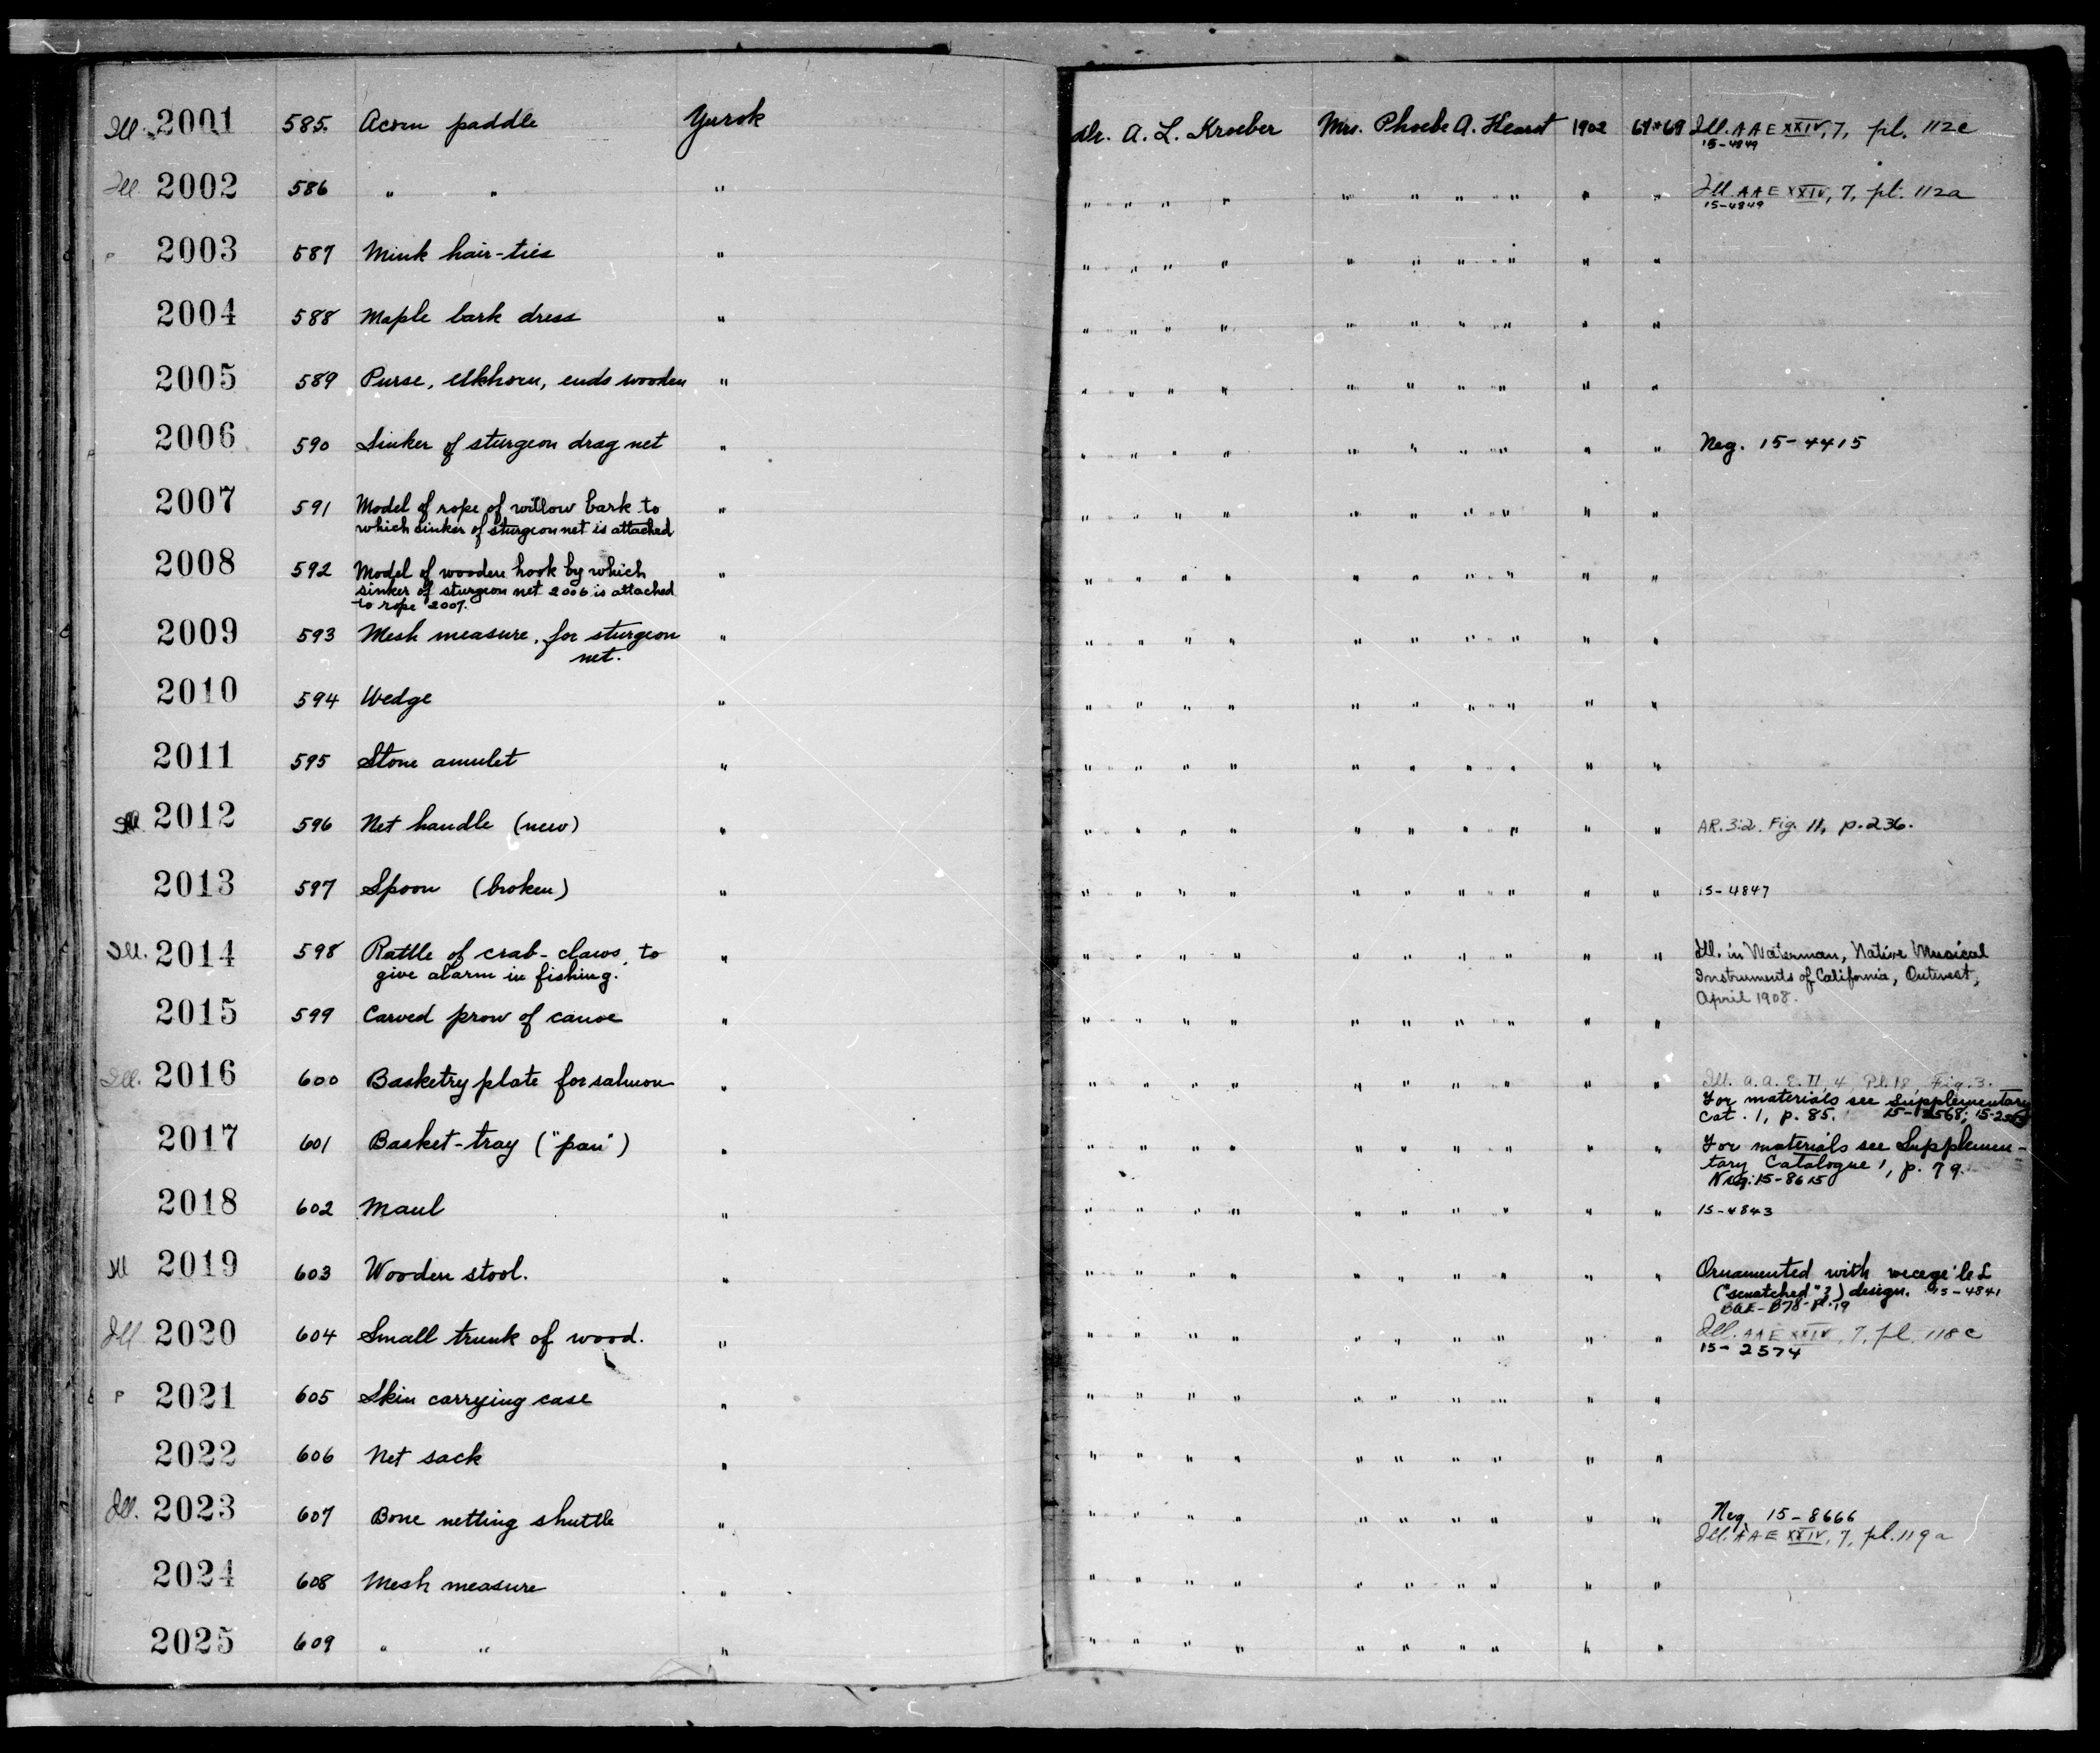 Ill. 2001 585. Acorn paddle Yurok Dr. A. L. Kroeber Mrs. Phoebe A. Hearst 1902 Ill. AAE XXIV, 7, pl. 112c
15-4849
Ill 2002 586 " " " " " " " " " " " " " " Ill. AAE XXIV, 7, pl. 112a
15-4849
P 2003 587 Mink hair-ties " " " " " " " " " " " "
2004 588 Maple bark dress " " " " " " " " " " " "
2005 589 Purse, elkhorn, ends wooden " " " " " " " " " " " "
2006 590 Sinker of sturgeon drag net " " " " " " " " " " " " Neg. 15-4415
2007 591 Model of rope of willow bark to " " " " " " " " " " " "
which sinker of sturgeon net is attached
2008 592 Model of wooden hook by which " " " " " " " " " " " "
sinker of sturgeon net 2006 is attached
to rope 2007.
2009 593 Mesh measure, for sturgeon " " " " " " " " " " " "
net.
2010 594 Wedge " " " " " " " " " " " "
2011 595 Stone amulet " " " " " " " " " " " "
Ill 2012 596 Net handle (new) " " " " " " " " " " " " AR. 3:2. Fig. 11, p. 236.
2013 597 Spoon (broken) " " " " " " " " " " " " 15-4847
Ill. 2014 598 Rattle of crab-claws, to " " " " " " " " " " " " Ill. in Waterman, Native Musical
give alarm in fishing. Instruments of California, Outwest,
April 1908.
2015 599 Carved prow of canoe " " " " " " " " " " " "
Ill. 2016 600 Basketry plate for salmon " " " " " " " " " " " " Ill. A. A. E. II, 4, Pl. 18, Fig. 3.
For materials see Supplementary
Cat. 1, p. 85.
2017 601 Basket-tray ("pan") " " " " " " " " " " " " For materials see Supplemen-
tary Catalogue 1, p. 79.
Neg. 15-8615
2018 602 Maul " " " " " " " " " " " " 15-4843
Ill 2019 603 Wooden stool. " " " " " " " " " " " " Ornamented with
("scratched"?) design. 15-4841
BAE-B78-Pl. 19
Ill 2020 604 Small trunk of wood. " " " " " " " " " " " " Ill. AAE XXIV, 7, pl. 118c
15-2574
P 2021 605 Skin carrying case " " " " " " " " " " " "
2022 606 Net sack " " " " " " " " " " " "
Ill. 2023 607 Bone netting shuttle " " " " " " " " " " " " Neg. 15-8666
Ill. AAE XXIV, 7, pl. 119a
2024 608 Mesh measure " " " " " " " " " " " "
2025 609 " " " " " " " " " " " " " "